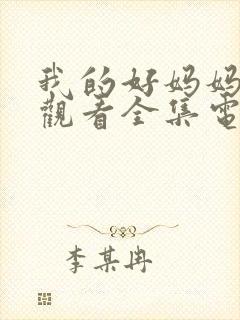 我的好妈妈
觀看全集電
李某冉